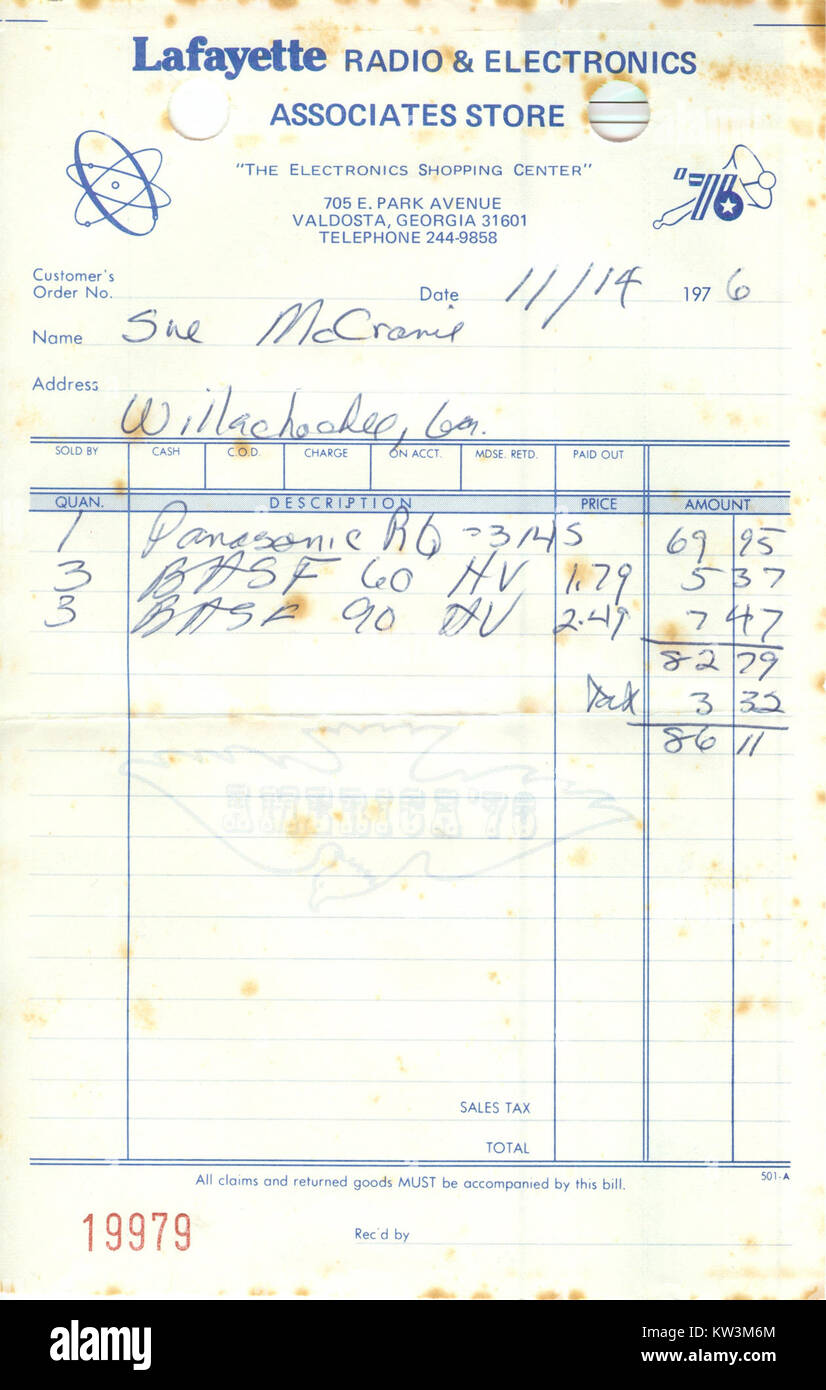 Lafayette RADIO & ELECTRONICS
ASSOCIATES STORE
"THE ELECTRONICS SHOPPING CENTER"
705 E. PARK AVENUE
VALDOSTA, GEORGIA 31601
TELEPHONE 244-9858
'76
Customer's
Order No.
Date 11/14 1976
Name Sue McCranie
Address
Willachoochee, Ga.
SOLD BY CASH C.O.D. CHARGE ON ACCT. MDSE. RETD. PAID OUT
QUAN. DESCRIPTION PRICE AMOUNT
1 Panasonic RQ-3145 69 95
3 BASF 60 HV 1.79 5 37
3 BASF 90 HV 2.49 7 47
82 79
Tax 3 32
86 11
AMERICA '76
SALES TAX
TOTAL
All claims and returned goods MUST be accompanied by this bill.
501-A
19979
Rec'd by
alamy
Image ID: KW3M6M
www.alamy.com